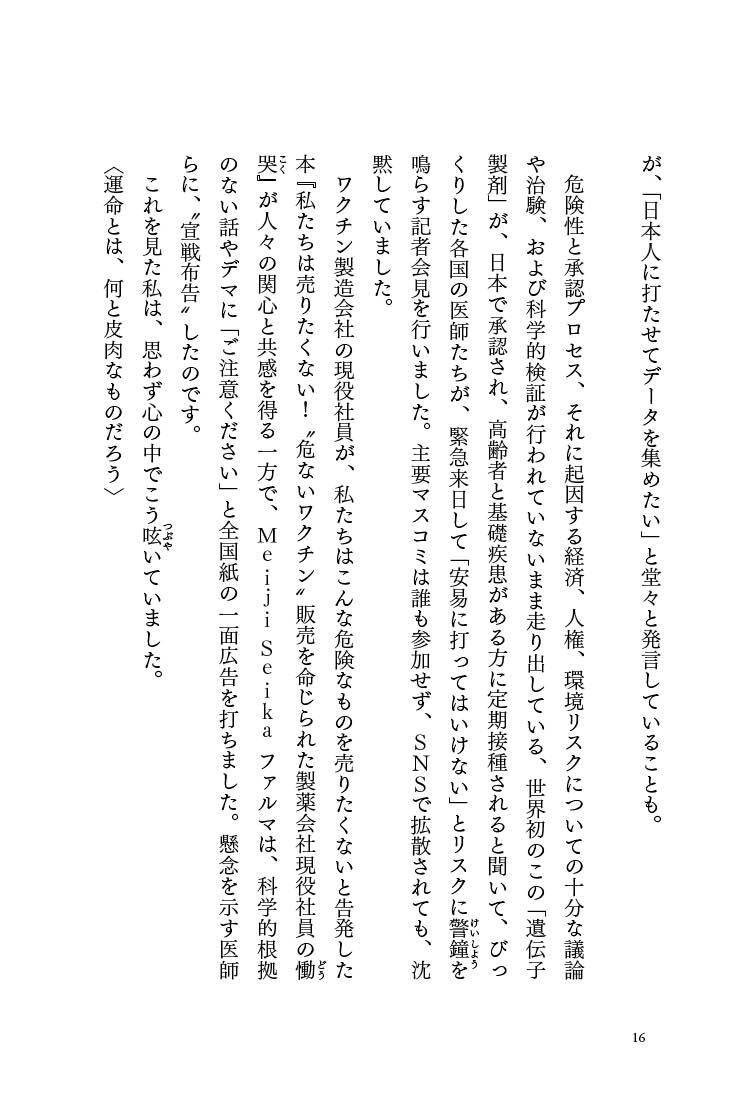 が、「日本人に打たせてデータを集めたい」と堂々と発言していることも。
危険性と承認プロセス、それに起因する経済、人権、環境リスクについての十分な議論
や治験、および科学的検証が行われていないまま走り出している、世界初のこの「遺伝子
製剤」が、日本で承認され、高齢者と基礎疾患がある方に定期接種されると聞いて、びっ
くりした各国の医師たちが、緊急来日して「安易に打ってはいけない」とリスクに警鐘を
鳴らす記者会見を行いました。主要マスコミは誰も参加せず、SNSで拡散されても、沈
黙していました。
ワクチン製造会社の現役社員が、私たちはこんな危険なものを売りたくないと告発した
本『私たちは売りたくない！〝危ないワクチン〟販売を命じられた製薬会社現役社員の慟
哭』が人々の関心と共感を得る一方で、Meiji Seikaファルマは、科学的根拠
のない話やデマに「ご注意ください」と全国紙の一面広告を打ちました。懸念を示す医師
らに、〝宣戦布告〟したのです。
これを見た私は、思わず心の中でこう呟いていました。
〈運命とは、何と皮肉なものだろう〉
けいしょう
どう
こく
つぶや
16